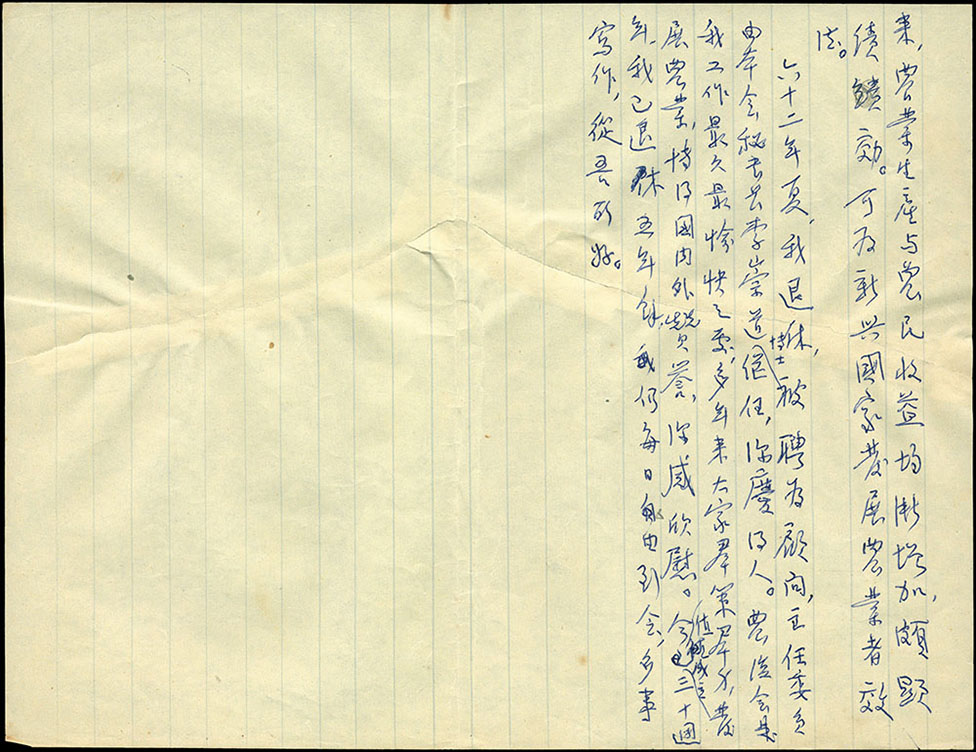 來，農業生產与農民收益均漸增加，頗顯
績効。可为新兴國家發展農業者效
法。
六十二年夏，我退休，被聘为顧问，主任委員
由本会秘书长李崇道博士继任，深慶得人。農復会是
我工作最久最愉快之處，多年来大家群策群力，發
展農業，博得國内外贊誉，深感欣慰。今值農復会成立三十週
年，我已退休五年餘，我仍每日自由到会，多事
寫作，從吾所好。